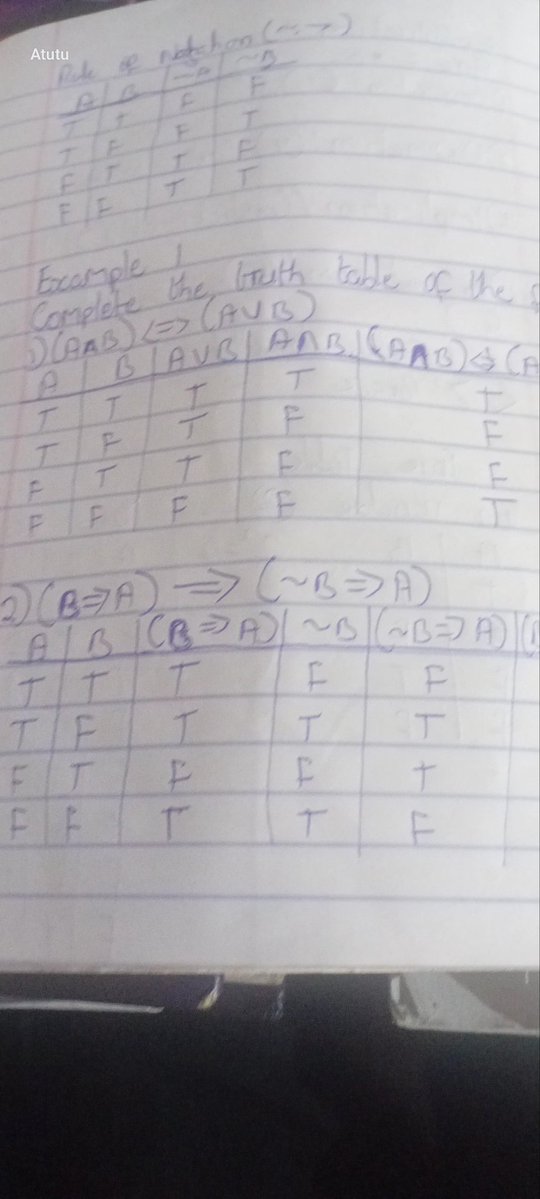 Atutu
Rule of Notation (~, →)
A B ~A ~B
T T F F
T F F T
F T T F
F F T T
Example 1
Complete the truth table of the
1) (A∩B) <=> (A∪B)
A B A∪B A∩B (A∩B) <=> (A
T T T T T
T F T F F
F T T F F
F F F F T
2) (B=>A) => (~B=>A)
A B (B=>A) ~B (~B=>A)
T T T F F
T F T T T
F T F F T
F F T T F